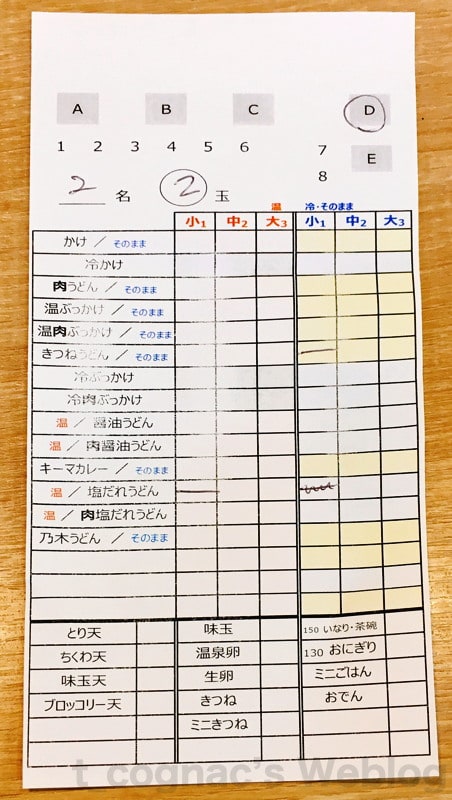 A B C D
1 2 3 4 5 6 7
8 E
2 名 2 玉
温 冷・そのまま
小1 中2 大3 小1 中2 大3
かけ / そのまま
冷かけ
肉うどん / そのまま
温ぶっかけ / そのまま
温肉ぶっかけ / そのまま
きつねうどん / そのまま
冷ぶっかけ
冷肉ぶっかけ
温 / 醤油うどん
温 / 肉醤油うどん
キーマカレー / そのまま
温 / 塩だれうどん
温 / 肉塩だれうどん
乃木うどん / そのまま
とり天 味玉 150 いなり・茶碗
ちくわ天 温泉卵 130 おにぎり
味玉天 生卵 ミニごはん
ブロッコリー天 きつね おでん
ミニきつね
t cognac's Weblog